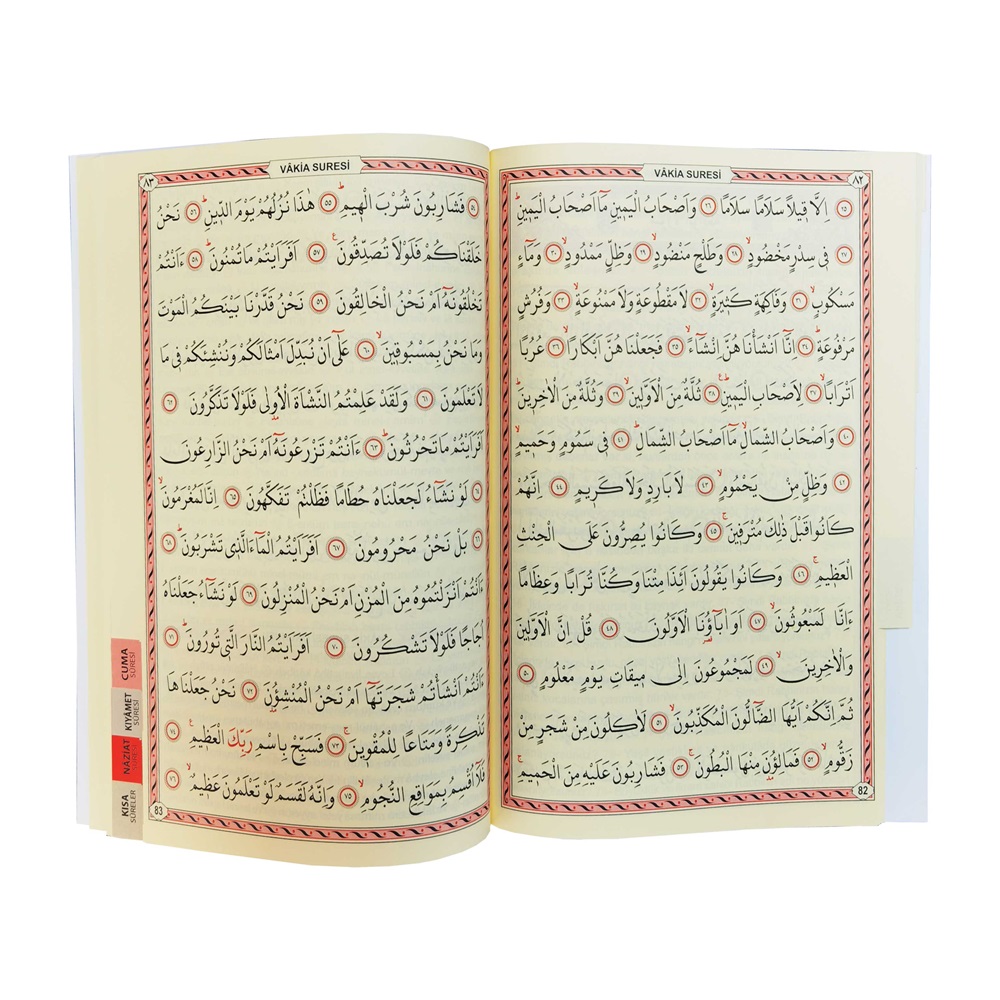 VÂKİA SURESİ
٨٢
٢٥ اِلَّا قٖيلًا سَلَامًا سَلَامًا ٢٦ وَاَصْحَابُ الْيَمٖينِ مَٓا اَصْحَابُ الْيَمٖينِۜ
٢٧ فٖي سِدْرٍ مَخْضُودٍۙ ٢٨ وَطَلْحٍ مَنْضُودٍۙ ٢٩ وَظِلٍّ مَمْدُودٍۙ ٣٠ وَمَٓاءٍ
مَسْكُوبٍۙ ٣١ وَفَاكِهَةٍ كَثٖيرَةٍۙ ٣٢ لَا مَقْطُوعَةٍ وَلَا مَمْنُوعَةٍۙ ٣٣ وَفُرُشٍ
مَرْفُوعَةٍۜ ٣٤ اِنَّٓا اَنْشَأْنَاهُنَّ اِنْشَٓاءًۙ ٣٥ فَجَعَلْنَاهُنَّ اَبْكَارًاۙ ٣٦ عُرُبًا
اَتْرَابًاۙ ٣٧ لِاَصْحَابِ الْيَمٖينِۜ ٣٨ ثُلَّةٌ مِنَ الْاَوَّلٖينَۙ ٣٩ وَثُلَّةٌ مِنَ الْاٰخِرٖينَۜ
٤٠ وَاَصْحَابُ الشِّمَالِۙ مَٓا اَصْحَابُ الشِّمَالِۜ ٤١ فٖي سَمُومٍ وَحَمٖيمٍۙ
٤٢ وَظِلٍّ مِنْ يَحْمُومٍۙ ٤٣ لَا بَارِدٍ وَلَا كَرٖيمٍ ٤٤ اِنَّهُمْ
كَانُوا قَبْلَ ذٰلِكَ مُتْرَفٖينَۚ ٤٥ وَكَانُوا يُصِرُّونَ عَلَى الْحِنْثِ
الْعَظٖيمِۚ ٤٦ وَكَانُوا يَقُولُونَ اَئِذَا مِتْنَا وَكُنَّا تُرَابًا وَعِظَامًا
ءَاِنَّا لَمَبْعُوثُونَۙ ٤٧ اَوَ اٰبَٓاؤُنَا الْاَوَّلُونَ ٤٨ قُلْ اِنَّ الْاَوَّلٖينَ
وَالْاٰخِرٖينَۙ ٤٩ لَمَجْمُوعُونَ اِلٰى مٖيقَاتِ يَوْمٍ مَعْلُومٍ ٥٠
ثُمَّ اِنَّكُمْ اَيُّهَا الضَّٓالُّونَ الْمُكَذِّبُونَۙ ٥١ لَاٰكِلُونَ مِنْ شَجَرٍ مِنْ
زَقُّومٍۙ ٥٢ فَمَالِؤُنَ مِنْهَا الْبُطُونَۚ ٥٣ فَشَارِبُونَ عَلَيْهِ مِنَ الْحَمٖيمِۚ
82
VÂKİA SURESİ
٨٣
٥٤ فَشَارِبُونَ شُرْبَ الْهٖيمِۜ ٥٥ هٰذَا نُزُلُهُمْ يَوْمَ الدّٖينِۜ ٥٦ نَحْنُ
خَلَقْنَاكُمْ فَلَوْلَا تُصَدِّقُونَ ٥٧ اَفَرَاَيْتُمْ مَا تُمْنُونَۜ ٥٨ ءَاَنْتُمْ
تَخْلُقُونَهُٓ اَمْ نَحْنُ الْخَالِقُونَ ٥٩ نَحْنُ قَدَّرْنَا بَيْنَكُمُ الْمَوْتَ
وَمَا نَحْنُ بِمَسْبُوقٖينَۙ ٦٠ عَلٰٓى اَنْ نُبَدِّلَ اَمْثَالَكُمْ وَنُنْشِئَكُمْ فٖي مَا
لَا تَعْلَمُونَ ٦١ وَلَقَدْ عَلِمْتُمُ النَّشْاَةَ الْاُو۫لٰى فَلَوْلَا تَذَكَّرُونَ ٦٢
اَفَرَاَيْتُمْ مَا تَحْرُثُونَۜ ٦٣ ءَاَنْتُمْ تَزْرَعُونَهُٓ اَمْ نَحْنُ الزَّارِعُونَ
٦٤ لَوْ نَشَٓاءُ لَجَعَلْنَاهُ حُطَامًا فَظَلْتُمْ تَفَكَّهُونَ ٦٥ اِنَّا لَمُغْرَمُونَۙ
٦٦ بَلْ نَحْنُ مَحْرُومُونَ ٦٧ اَفَرَاَيْتُمُ الْمَٓاءَ الَّذٖي تَشْرَبُونَۜ ٦٨
ءَاَنْتُمْ اَنْزَلْتُمُوهُ مِنَ الْمُزْنِ اَمْ نَحْنُ الْمُنْزِلُونَ ٦٩ لَوْ نَشَٓاءُ جَعَلْنَاهُ
اُجَاجًا فَلَوْلَا تَشْكُرُونَ ٧٠ اَفَرَاَيْتُمُ النَّارَ الَّتٖي تُورُونَۜ ٧١
ءَاَنْتُمْ اَنْشَأْتُمْ شَجَرَتَهَٓا اَمْ نَحْنُ الْمُنْشِؤُنَ ٧٢ نَحْنُ جَعَلْنَاهَا
تَذْكِرَةً وَمَتَاعًا لِلْمُقْوٖينَۚ ٧٣ فَسَبِّحْ بِاسْمِ رَبِّكَ الْعَظٖيمِ ٧٤
فَلَٓا اُقْسِمُ بِمَوَاقِعِ النُّجُومِۙ ٧٥ وَاِنَّهُ لَقَسَمٌ لَوْ تَعْلَمُونَ عَظٖيمٌۙ ٧٦
83
CUMA
SÛRESİ
KIYÂMET
SÛRESİ
NÂZİAT
SÛRESİ
KISA
SÛRELER